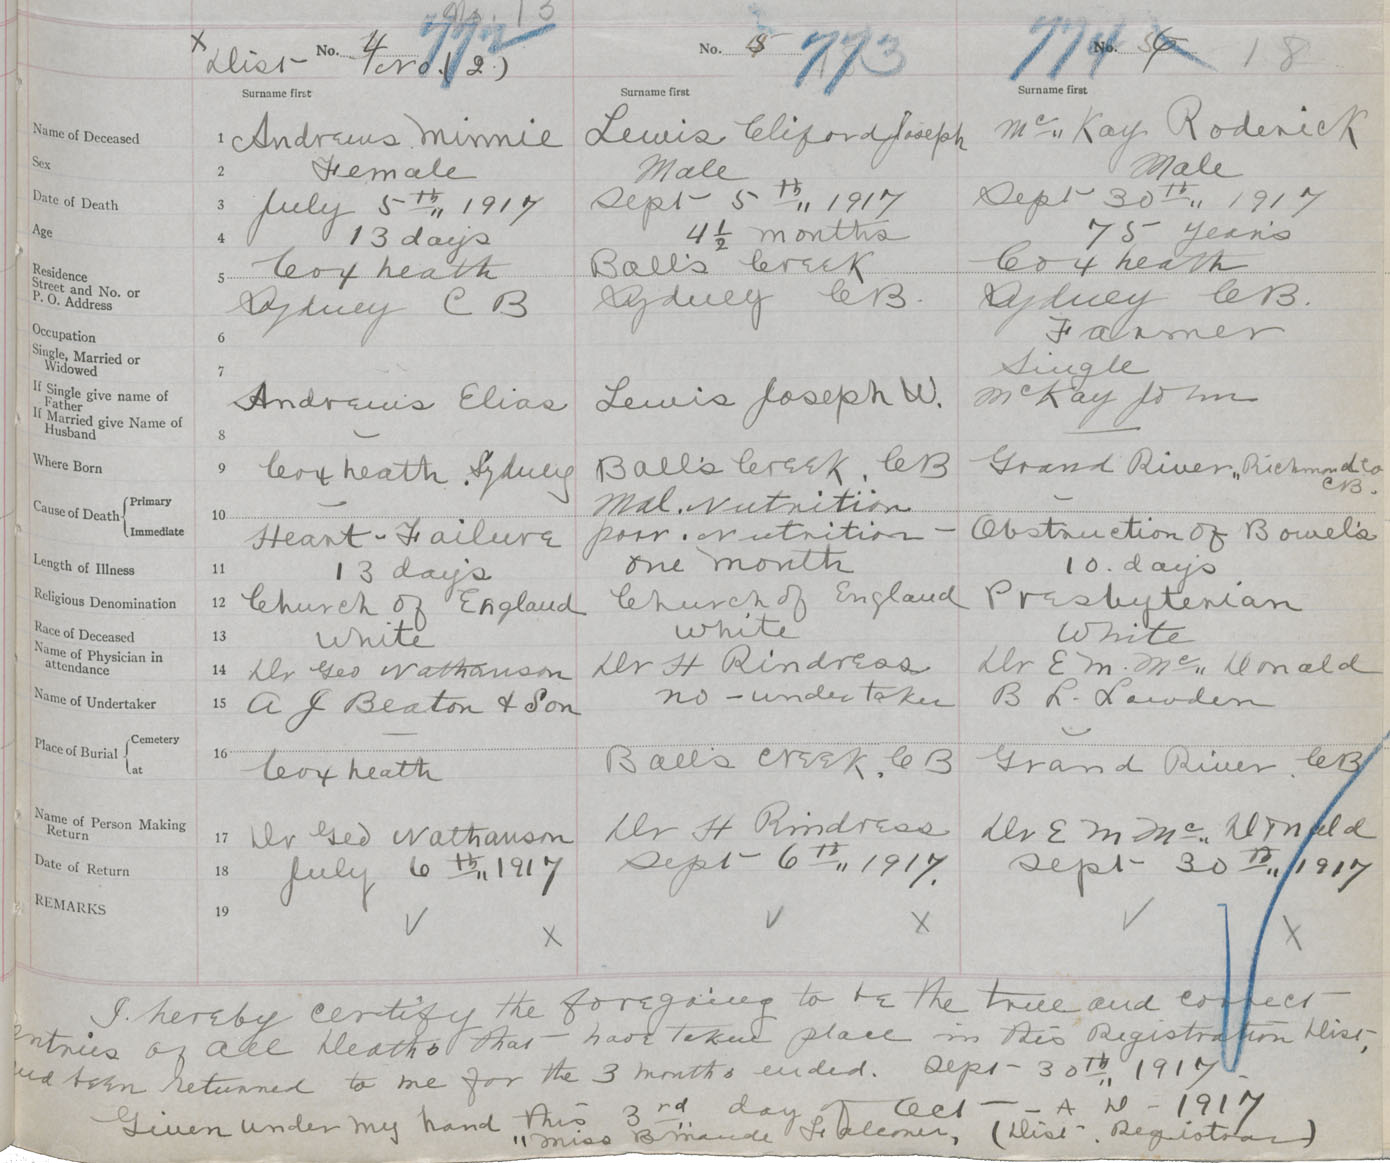 No. 13
x Dist No. 4 (No. 2) 772
No. 5 773
No. 6 774 18
Surname first Surname first Surname first
Name of Deceased 1 Andrews Minnie Lewis Cliford Joseph Mc„ Kay Roderick
Sex 2 Female Male Male
Date of Death 3 July 5th„ 1917 Sept 5th„ 1917 Sept 30th„ 1917
Age 4 13 days 4½ months 75 years
Residence
Street and No. or
P. O. Address
5 Coxheath Ball's Creek Coxheath
Sydney C B Sydney C B. Sydney C B.
Occupation 6 Farmer
Single, Married or
Widowed
7 Single
If Single give name of
Father
Andrews Elias Lewis Joseph W. McKay John
If Married give Name of
Husband
8
Where Born 9 Coxheath, Sydney Ball's Creek, CB Grand River„ Richmond Co
CB.
Cause of Death Primary 10 Mal. Nutrition
Immediate Heart-Failure poor. Nutrition - Obstruction of Bowel's
Length of Illness 11 13 days one month 10. days
Religious Denomination 12 Church of England Church of England Presbyterian
Race of Deceased 13 White White White
Name of Physician in
attendance
14 Dr Geo Nathanson Dr H Rindress Dr E M. Mc„ Donald
Name of Undertaker 15 A J Beaton & Son no-undertaker B L. Lowden
Place of Burial Cemetery 16
at Coxheath Ball's Creek, CB Grand River, CB
Name of Person Making
Return
17 Dr Geo Nathanson Dr H Rindress Dr E M Mc„ Donald
Date of Return 18 July 6th„ 1917 Sept 6th„ 1917. Sept 30th„ 1917
REMARKS 19
I hereby certify the foregoing to be the true and correct
entries of all Deaths that have taken place in this Registration Dist,
and been returned to me for the 3 months ended. Sept 30th„ 1917 -
Given under my hand this 3rd day of Oct - A D - 1917
"Miss B Maude Falconer, (Dist. Registrar)